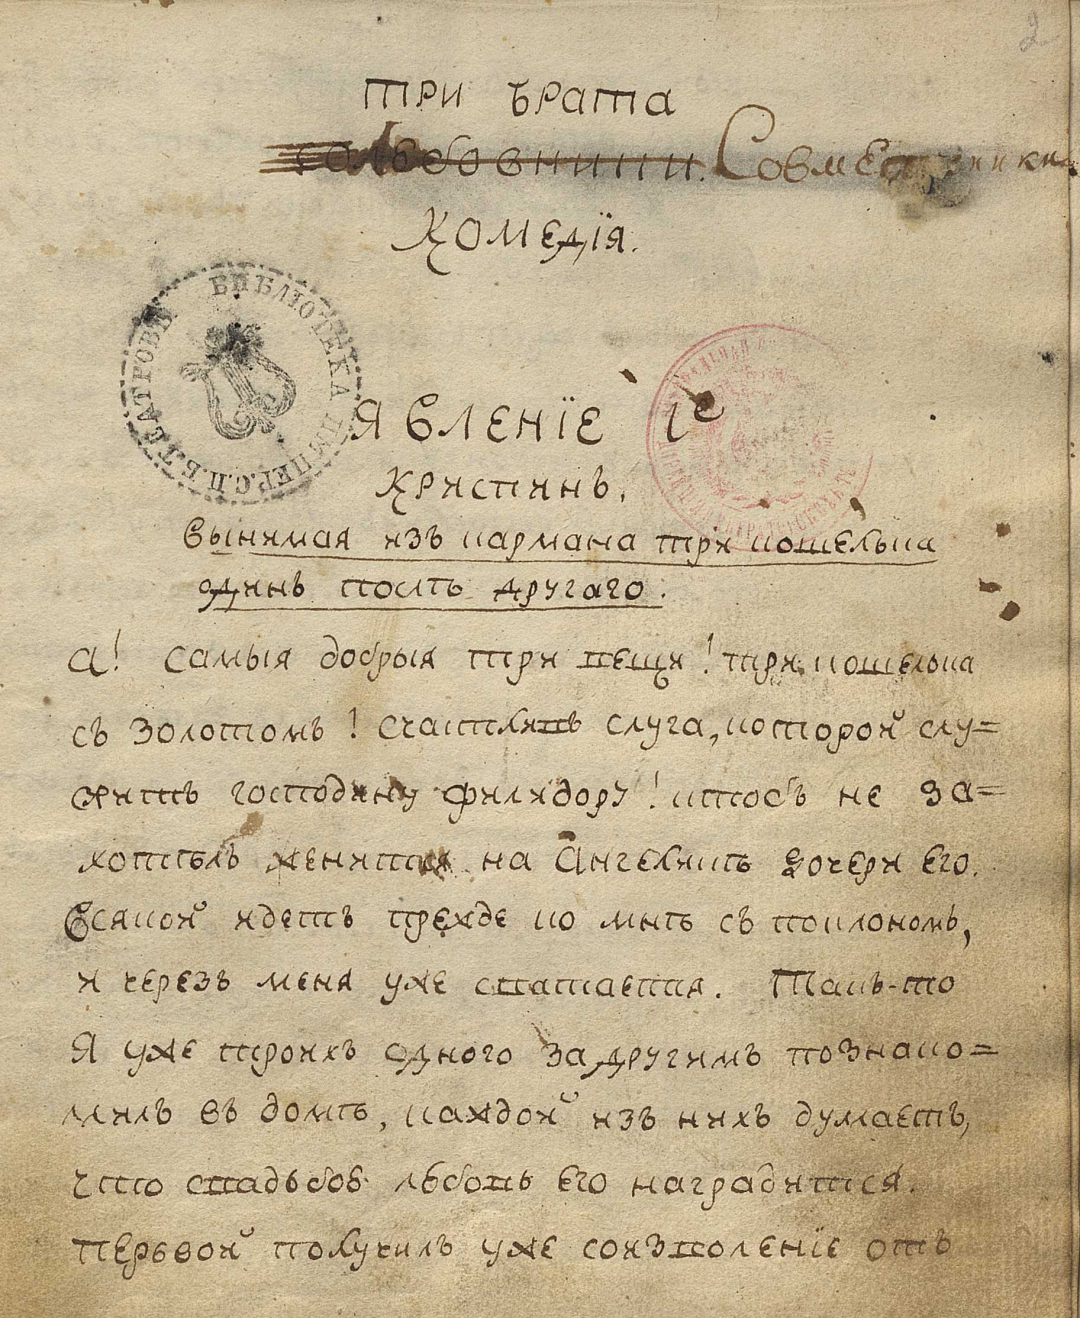 2
ТРИ БРАТА
Совместники
КОМЕДІЯ.
БИБЛІОТЕКА ИМПЕР. С.П.Б. ТЕАТРОВЪ
ЯВЛЕНІЕ 1е
Криспинъ,
вынимая изъ кармана три кошелька
одинъ послѣ другаго.
А! самыя добрыя три вещи! три кошелька
съ золотомъ! счастливъ слуга, которой слу=
житъ господину Филидору! ктобъ не за=
хотѣлъ женится на Ангеликѣ дочери его.
Всякой идетъ прежде ко мнѣ съ поклономъ,
и черезъ меня уже сватается. Такъ-то
Я уже троихъ одного за другимъ познако=
милъ въ домѣ, каждой изъ нихъ думаетъ,
что свадьбою любовь его наградится.
Первой получилъ уже соизволеніе отъ